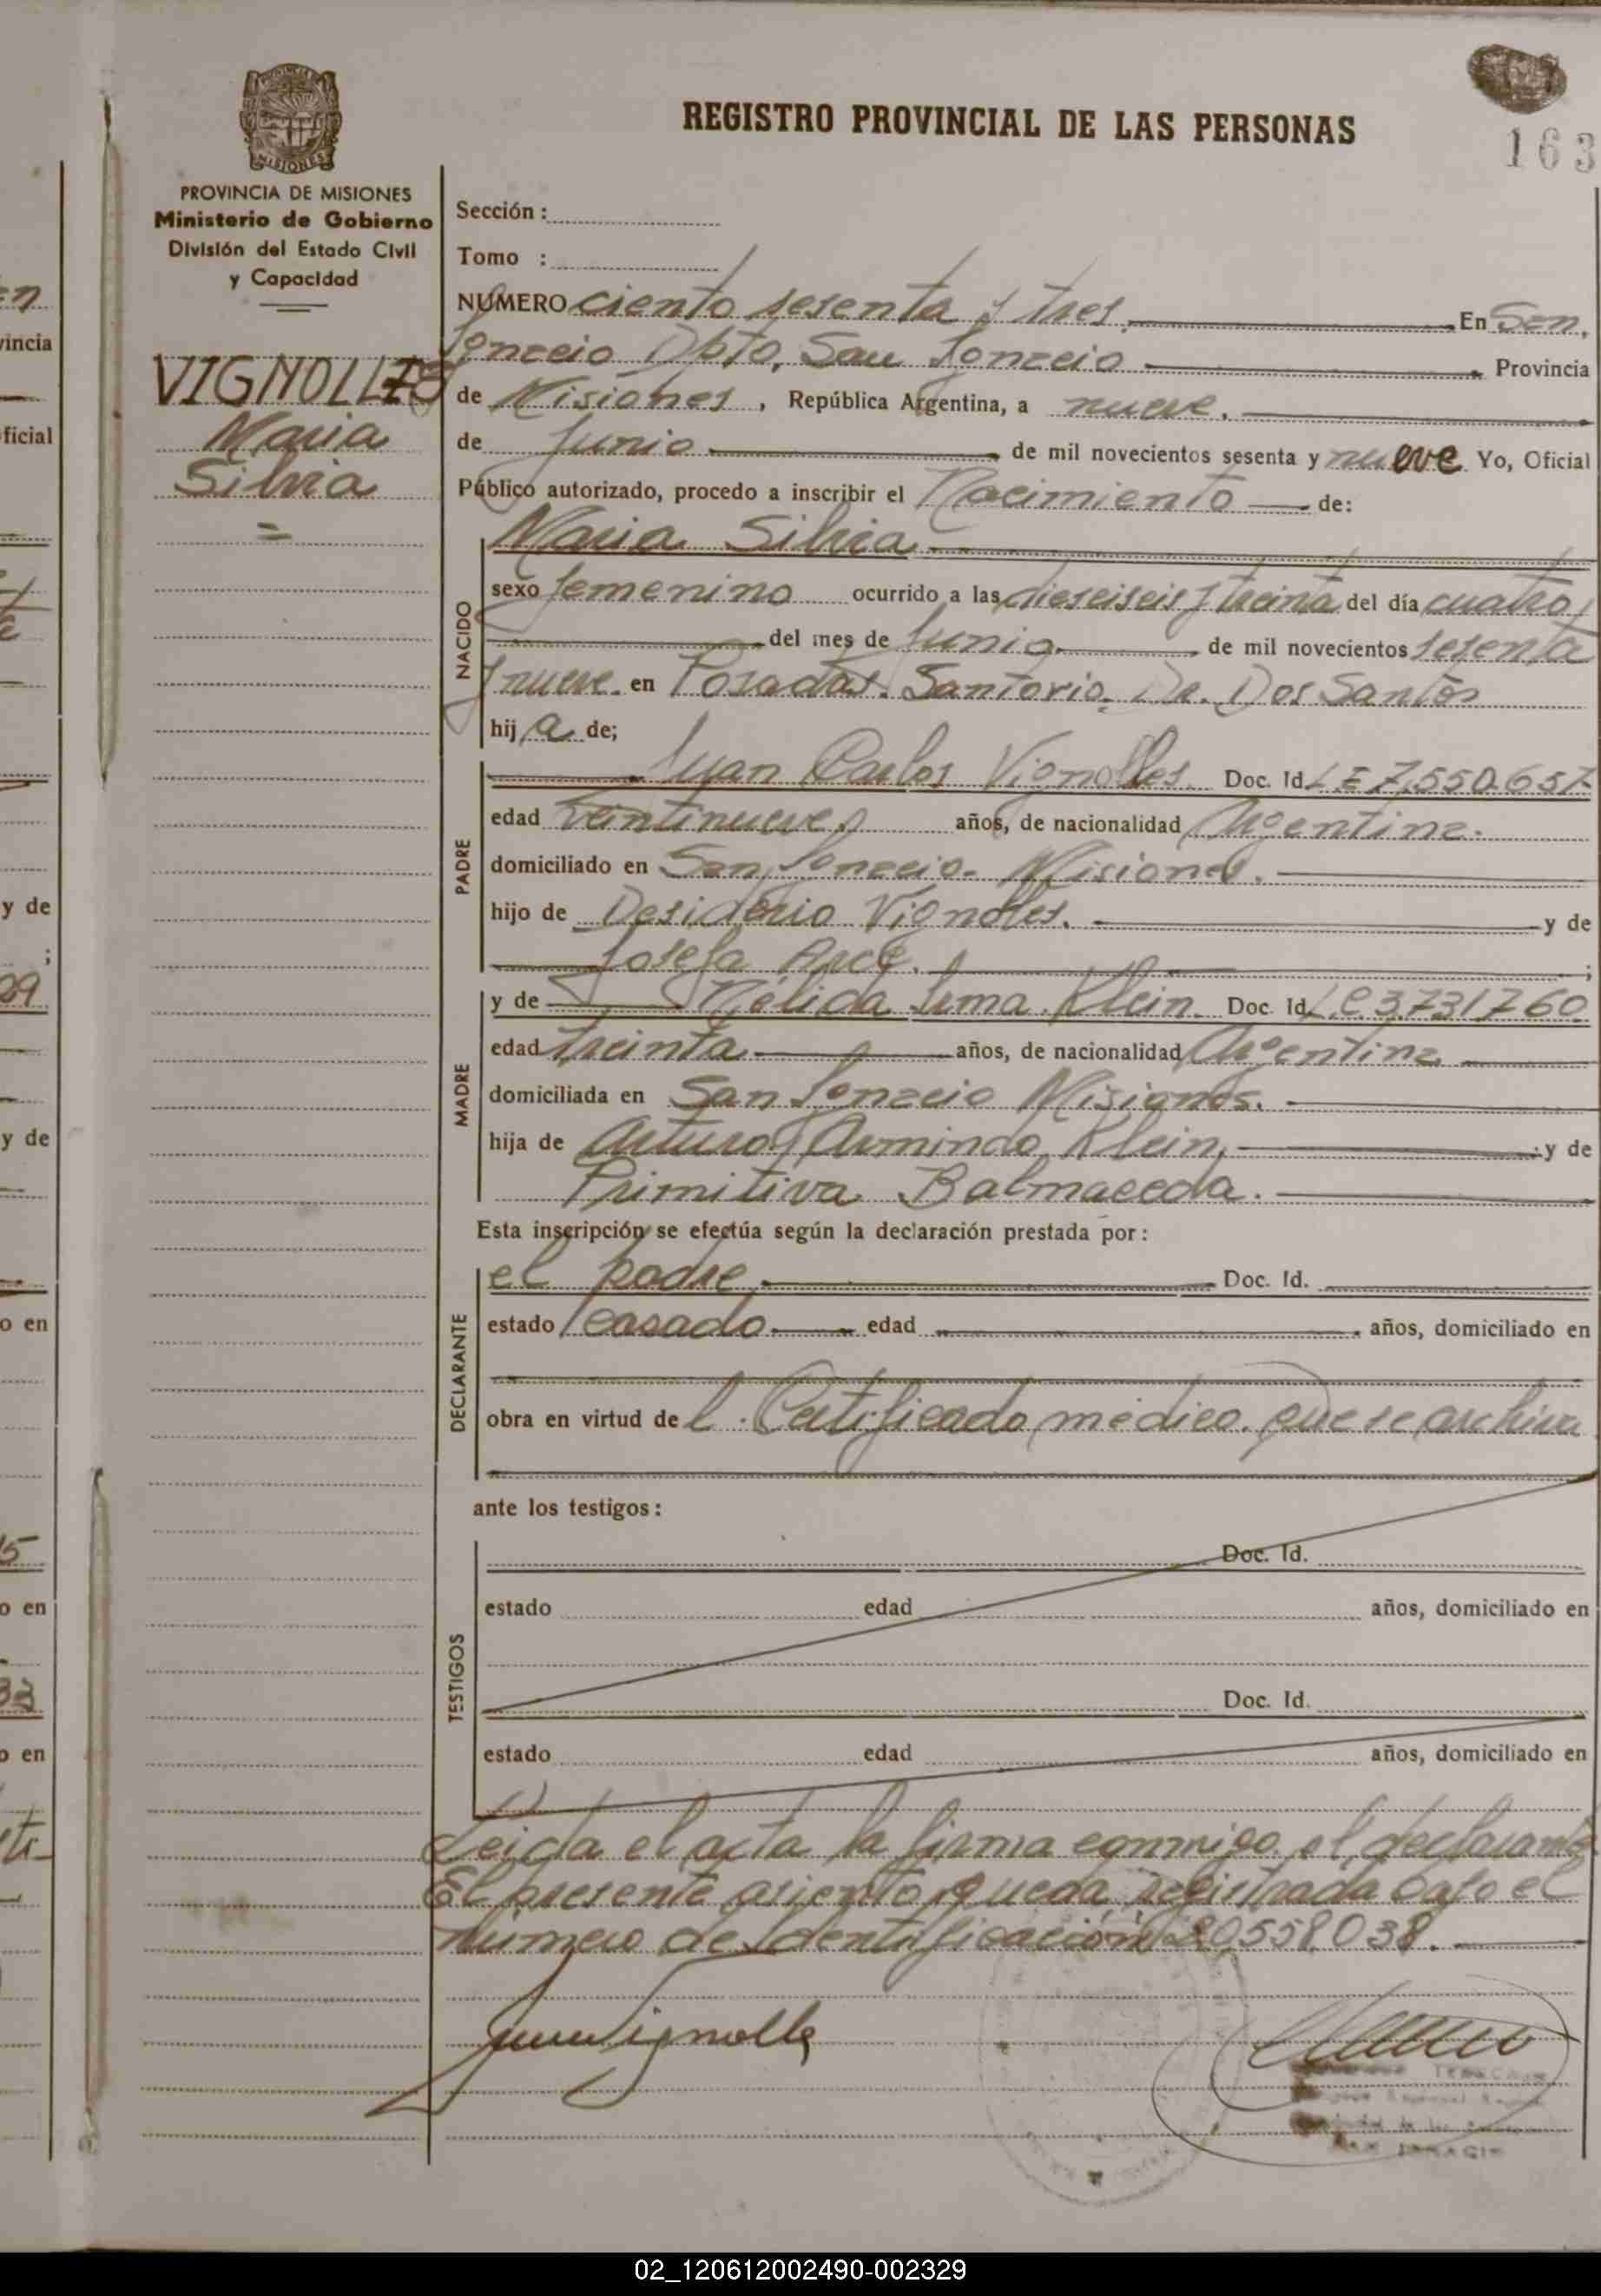 REGISTRO PROVINCIAL DE LAS PERSONAS
163
PROVINCIA DE MISIONES
Ministerio de Gobierno
División del Estado Civil
y Capacidad
VIGNOLLES
Maria
Silvia
=
Sección :
Tomo :
NUMERO ciento sesenta y tres En San
Ignacio Dpto. San Ignacio Provincia
de Misiones, República Argentina, a nueve.
de Junio de mil novecientos sesenta y nueve Yo, Oficial
Público autorizado, procedo a inscribir el Nacimiento de:
Maria Silvia
NACIDO
sexo femenino ocurrido a las dieseiseis y treinta del día cuatro
del mes de Junio de mil novecientos sesenta
y nueve en Posadas. Santorio. Dr. Dos Santos
hija de;
PADRE
Juan Carlos Vignolles. Doc. Id. L E 7.550.657
edad veintinueve años, de nacionalidad Argentina.
domiciliado en San Ignacio. Misiones.
hijo de Desiderio Vignolles. y de
Josefa Arce. ;
MADRE
y de Nélida Irma Klein. Doc. Id. L.C 3.731760
edad treinta años, de nacionalidad Argentina
domiciliada en San Ignacio Misiones.
hija de Arturo Armindo Klein, y de
Primitiva Balmaceda.
Esta inscripción se efectúa según la declaración prestada por :
DECLARANTE
el padre Doc. Id.
estado casado edad años, domiciliado en
obra en virtud del Certificado médico. que se archiva
ante los testigos :
TESTIGOS
Doc. Id.
estado edad años, domiciliado en
Doc. Id.
estado edad años, domiciliado en
Leida el acta la firma conmigo el declarante
El presente asiento queda registrada bajo el
Número de Identificación 20.558.038.
02_120612002490-002329